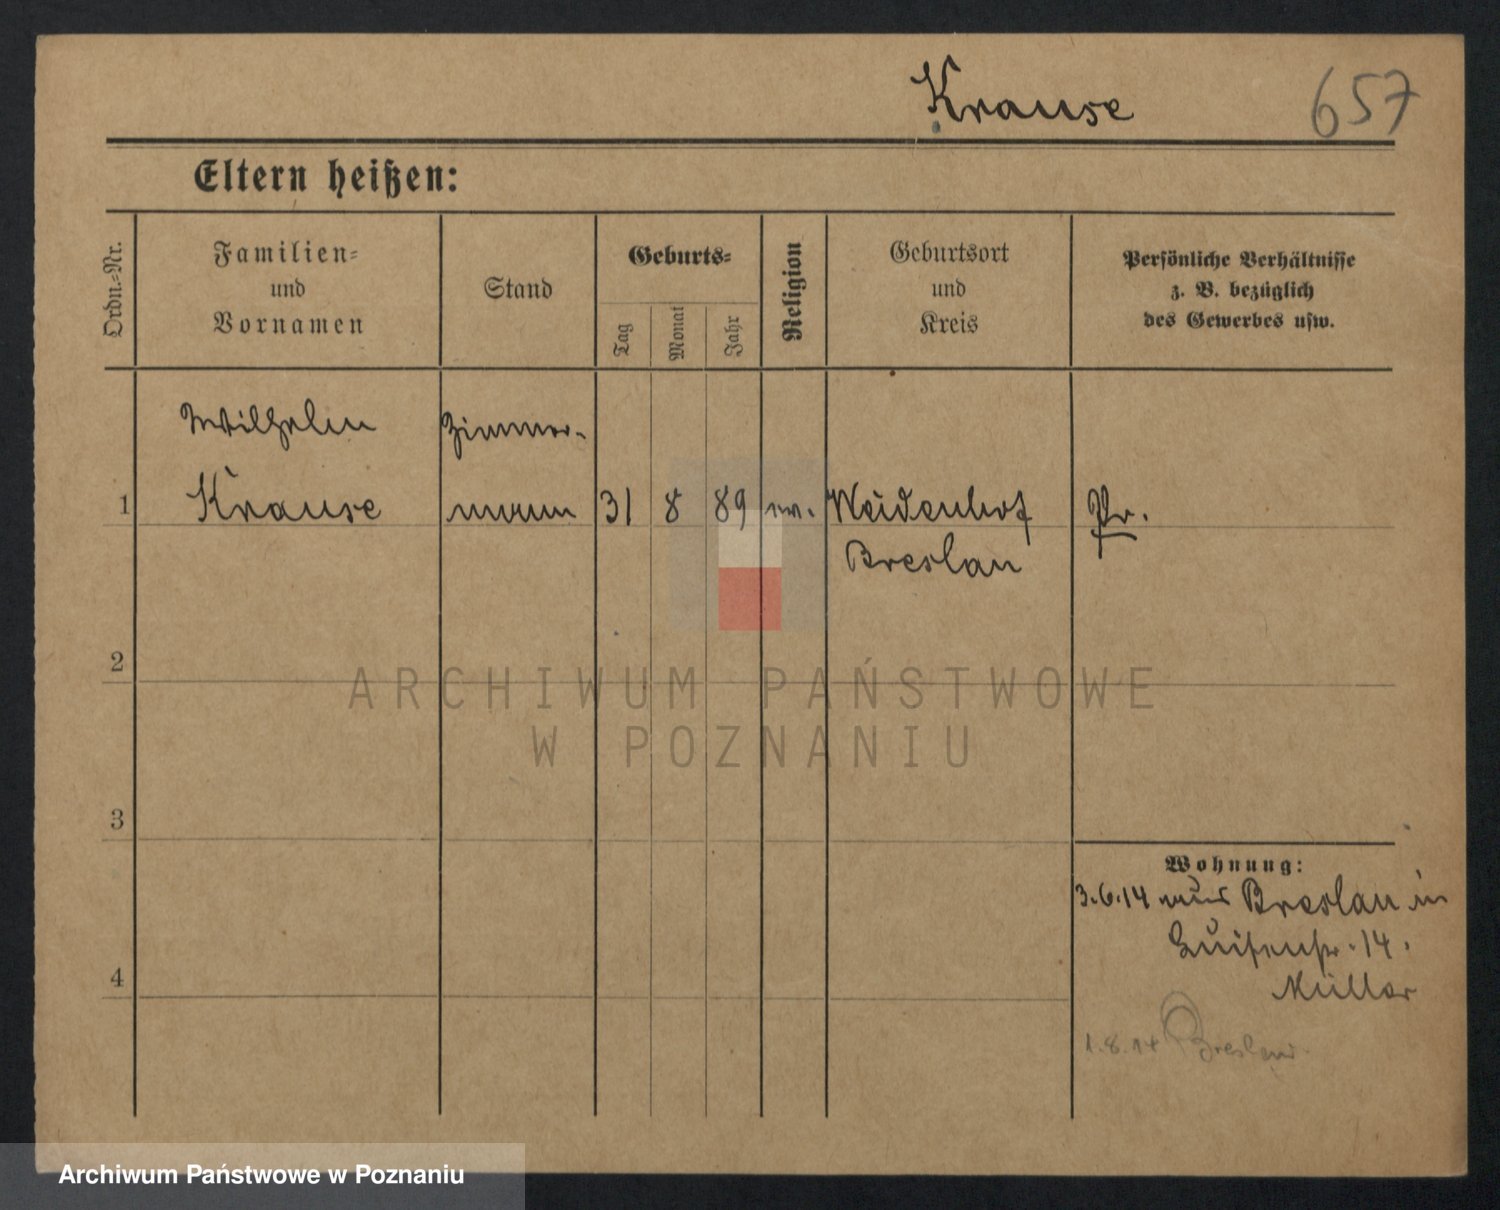 Krause 657
Eltern heißen:
Ordn.-Nr.
Familien-
und
Vornamen
Stand
Geburts-
Tag
Monat
Jahr
Religion
Geburtsort
und
Kreis
Persönliche Verhältnisse
z. B. bezüglich
des Gewerbes usw.
Wilhelm Zimmer-
1 Krause mann 31 8 89 ev. Weidenhof Pr.
Breslau
2
ARCHIWUM PAŃSTWOWE
W POZNANIU
3
Wohnung:
3.6.14 aus Breslau in
Luisenstr. 14.
Müller
4
1.8.14 Breslau
Archiwum Państwowe w Poznaniu